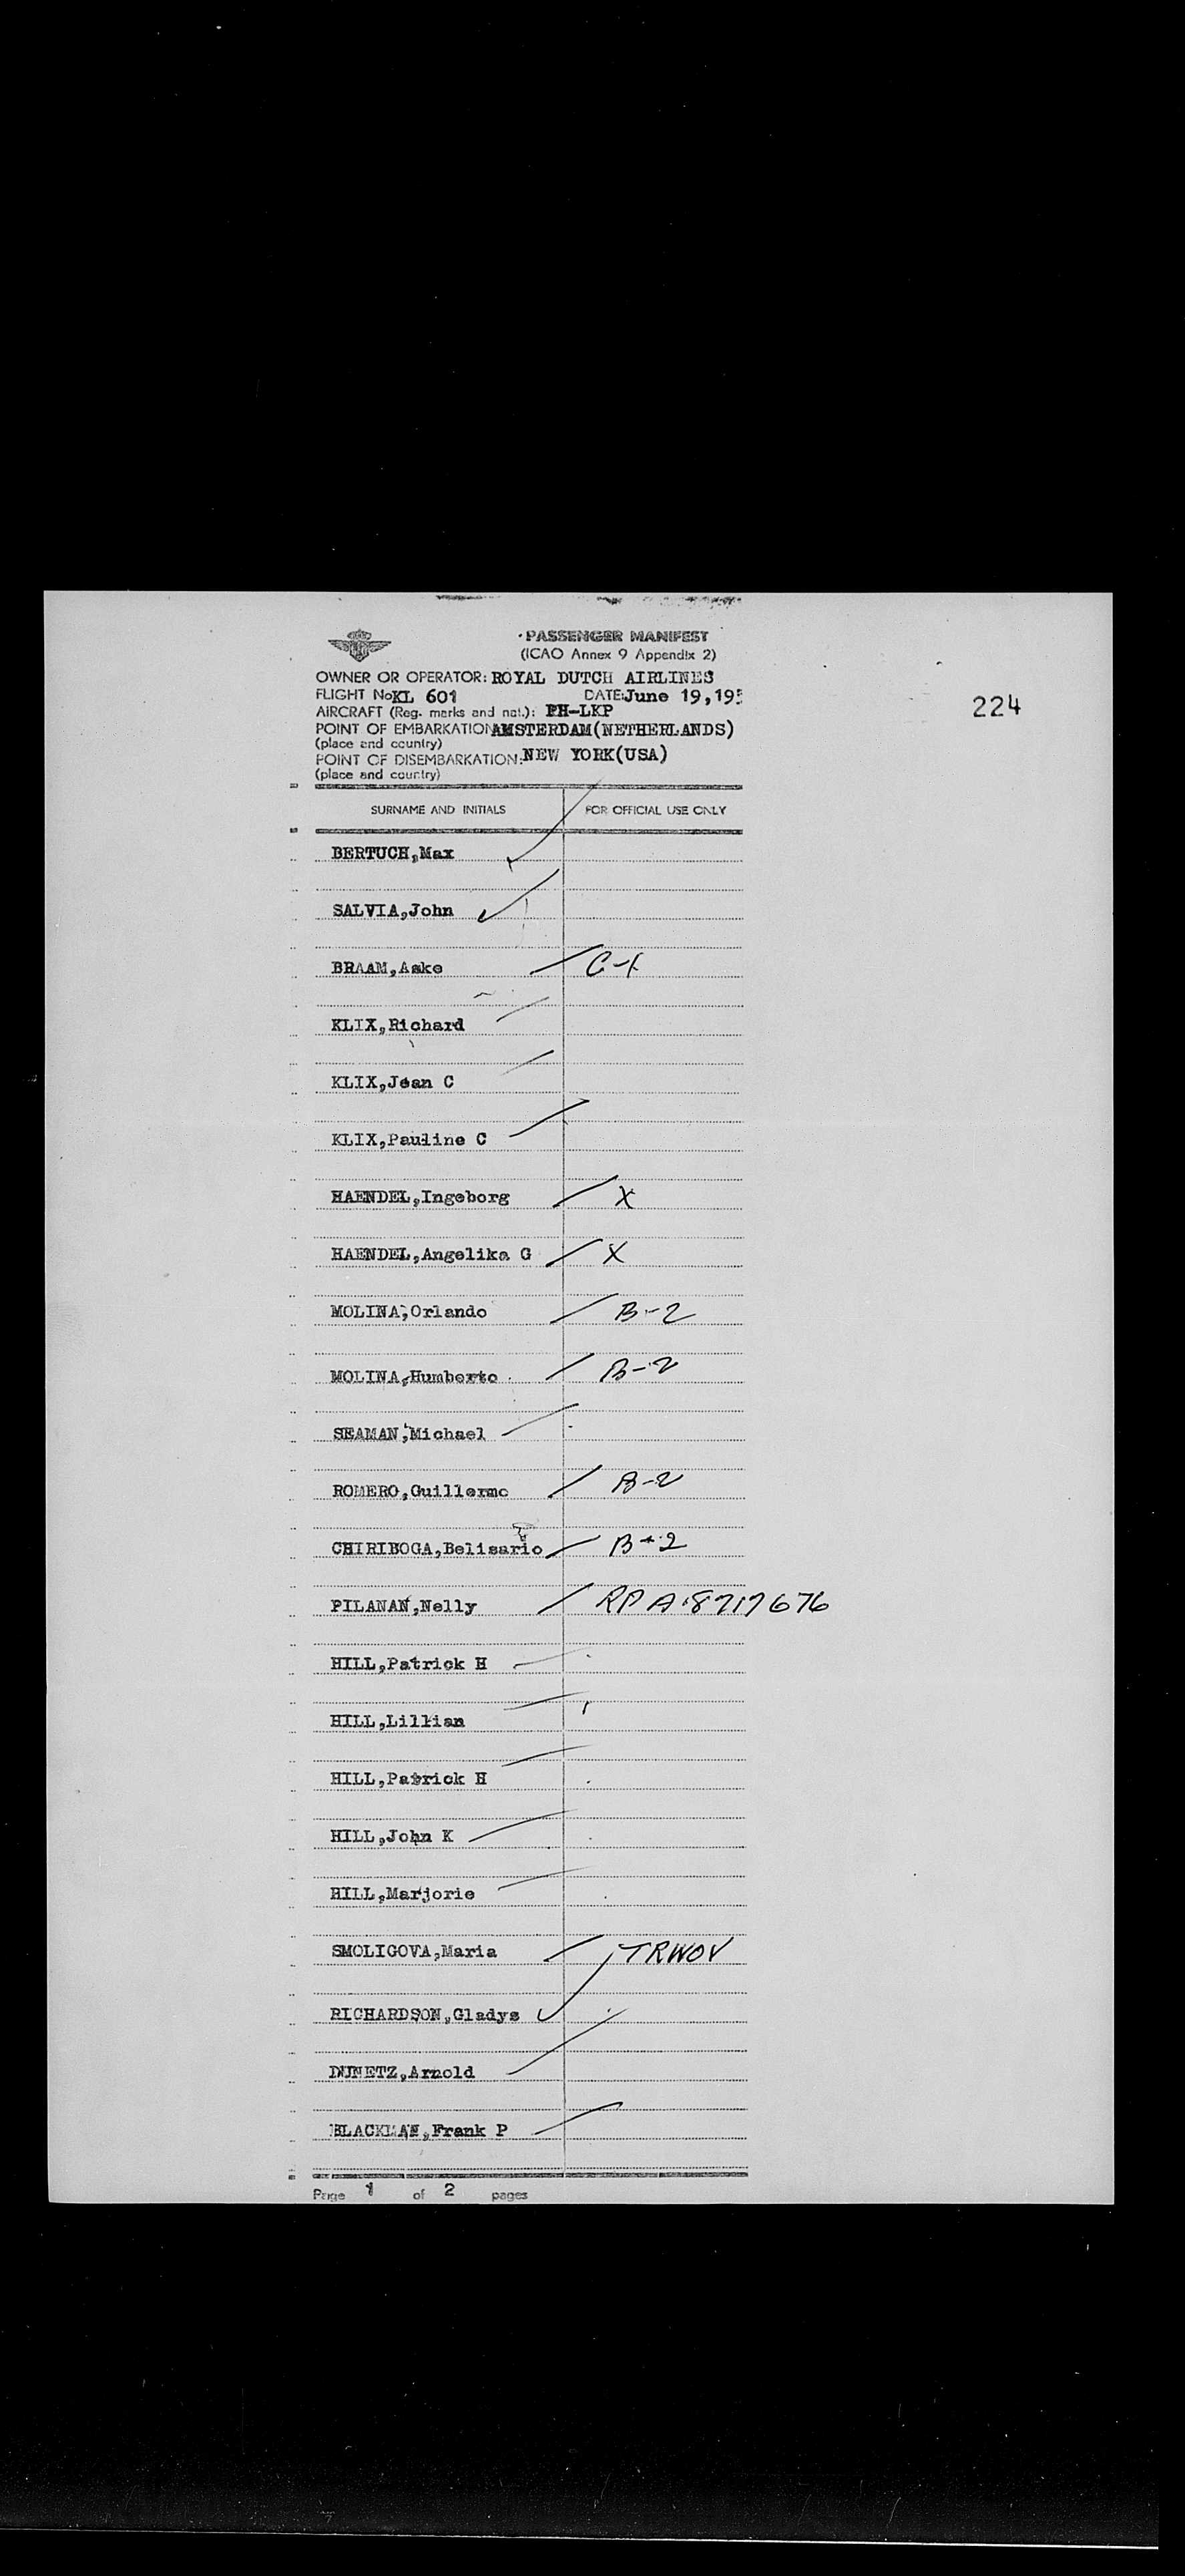 PASSENGER MANIFEST
(ICAO Annex 9 Appendix 2)
OWNER OR OPERATOR: ROYAL DUTCH AIRLINES
FLIGHT No KL 601 DATE: June 19,195
224
AIRCRAFT (Reg. marks and nat.): PH-LKP
POINT OF EMBARKATION AMSTERDAM(NETHERLANDS)
(place and country)
POINT OF DISEMBARKATION: NEW YORK(USA)
(place and country)
SURNAME AND INITIALS FOR OFFICIAL USE ONLY
BERTUCH,Max
SALVIA,John
BRAAM,Aake C-1
KLIX,Richard
KLIX,Jean C
KLIX,Pauline C
HAENDEL,Ingeborg X
HAENDEL,Angelika G X
MOLINA,Orlando B-2
MOLINA,Humberto B-2
SEAMAN,Michael
ROMERO,Guillermo B-2
CHIRIBOGA,Belisario B-2
PILANAN,Nelly RP A 8717676
HILL,Patrick H
HILL,Lillian
HILL,Patrick H
HILL,John K
HILL,Marjorie
SMOLIGOVA,Maria TRWOV
RICHARDSON,Gladys
DUNETZ,Arnold
BLACKMAN,Frank P
Page 1 of 2 pages